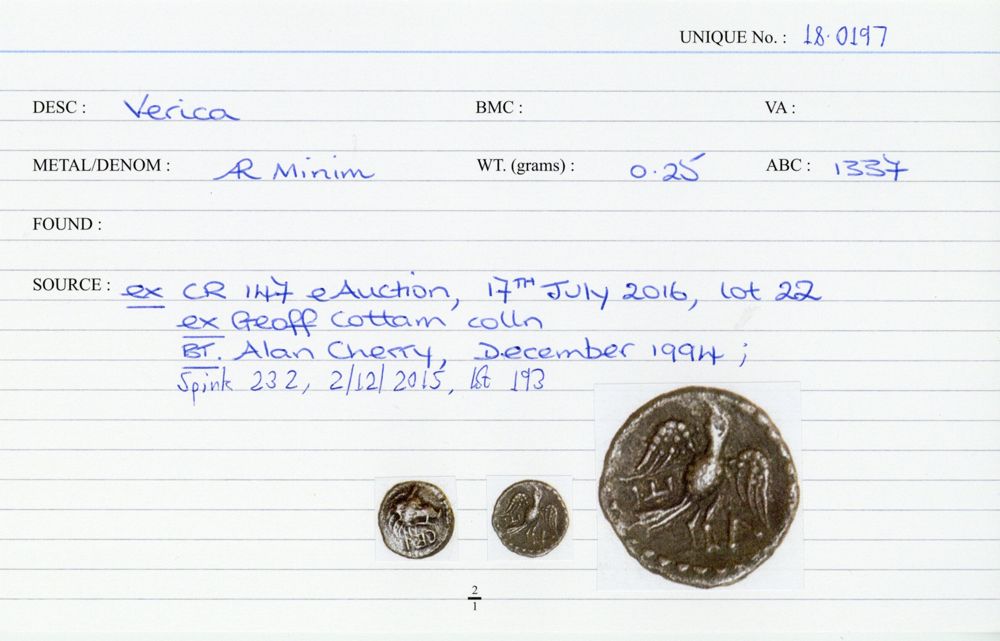 UNIQUE No. : 18.0197
DESC : Verica BMC : VA :
METAL/DENOM : AR Minim WT. (grams) : 0.25 ABC : 1337
FOUND :
SOURCE : ex CR 147 eAuction, 17TH July 2016, lot 22
ex Geoff Cottam colln
BT. Alan Cherry, December 1994 ;
Spink 232, 2/12/2015, lot 193
2
1